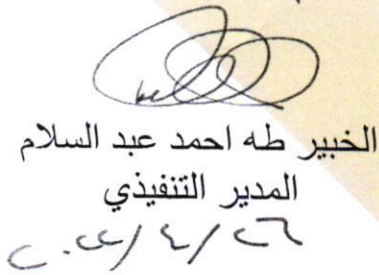 الخبير طه احمد عبد السلام
المدير التنفيذي
٢٠٢٤/٤/٢٦